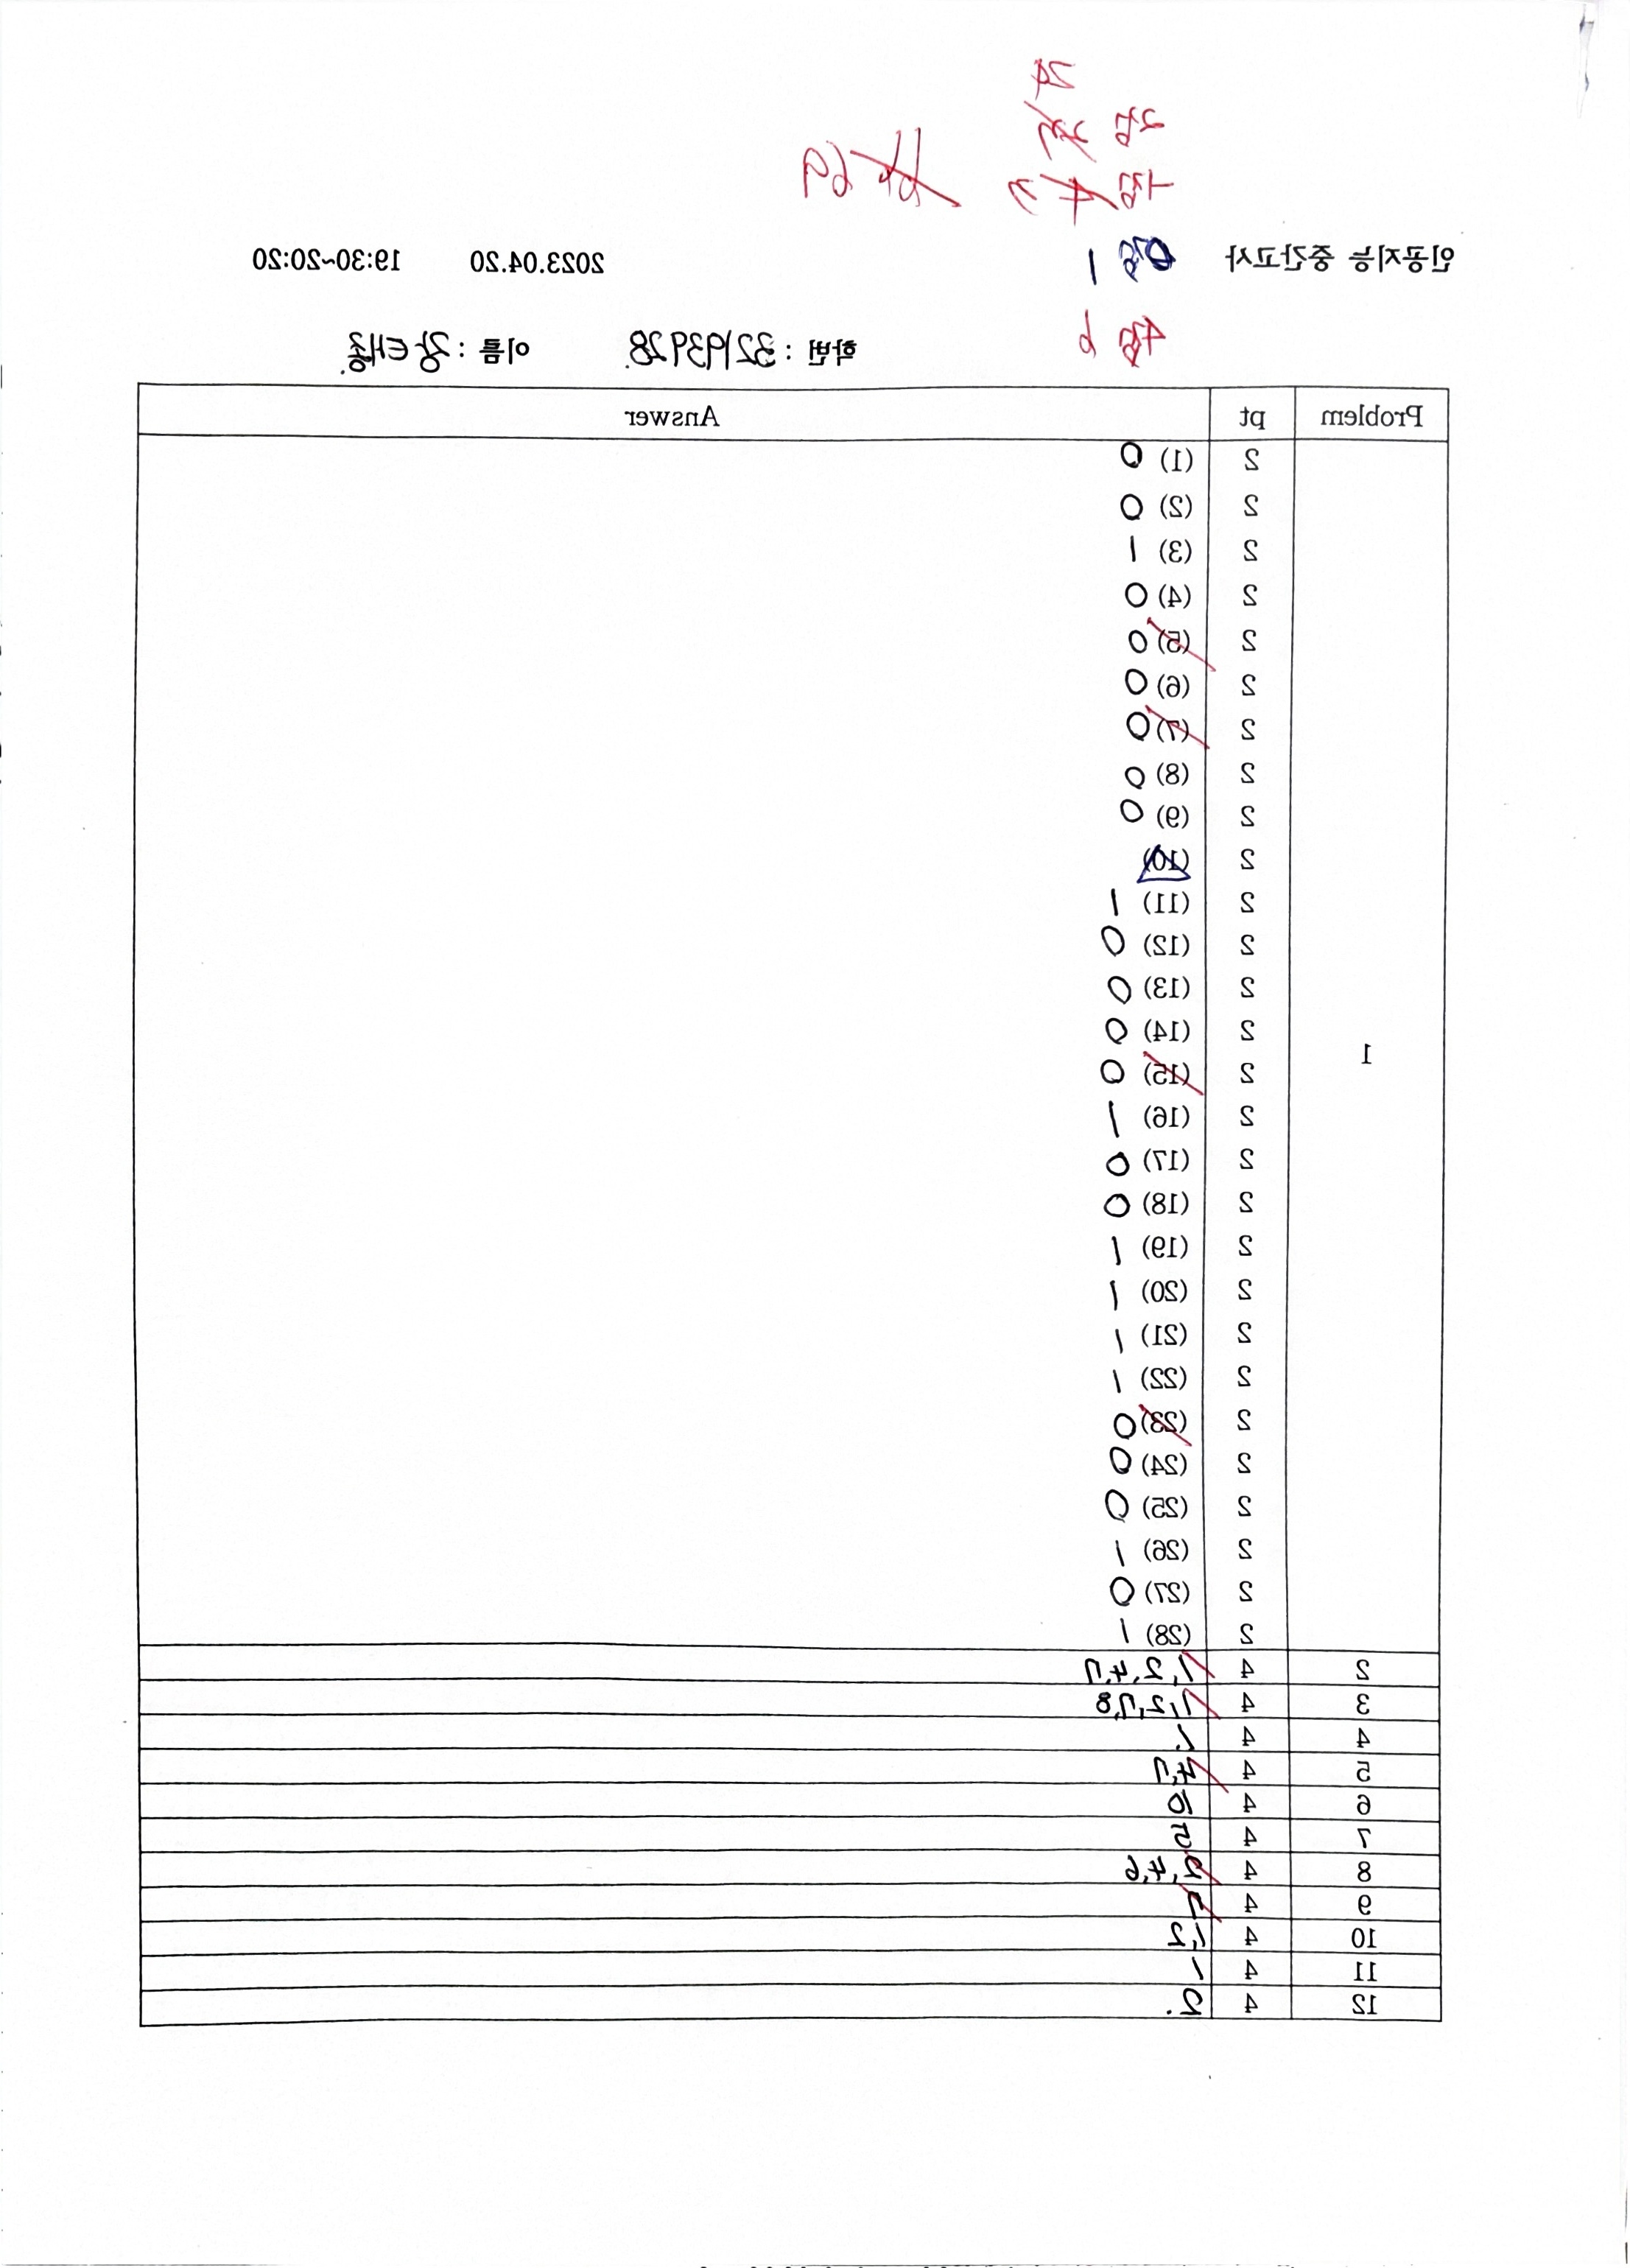 24
2점
1점 3
69
인공지능 중간고사 0점 1 2023.04.20 19:30~20:20
4점 6
학번 : 32193928. 이름 : 강태종.
Problem pt Answer
2 (1) 0
2 (2) 0
2 (3) 1
2 (4) 0
2 (5) 0
2 (6) 0
2 (7) 0
2 (8) 0
2 (9) 0
2 (10)
2 (11) 1
2 (12) 0
2 (13) 0
2 (14) 0
1 2 (15) 0
2 (16) 1
2 (17) 0
2 (18) 0
2 (19) 1
2 (20) 1
2 (21) 1
2 (22) 1
2 (23) 0
2 (24) 0
2 (25) 0
2 (26) 1
2 (27) 0
2 (28) 1
2 4 1,2,4,7
3 4 1,2,7,8
4 4 1.
5 4 4,7
6 4 10
7 4 5
8 4 2,4,6
9 4
10 4 1,2
11 4 1
12 4 2.